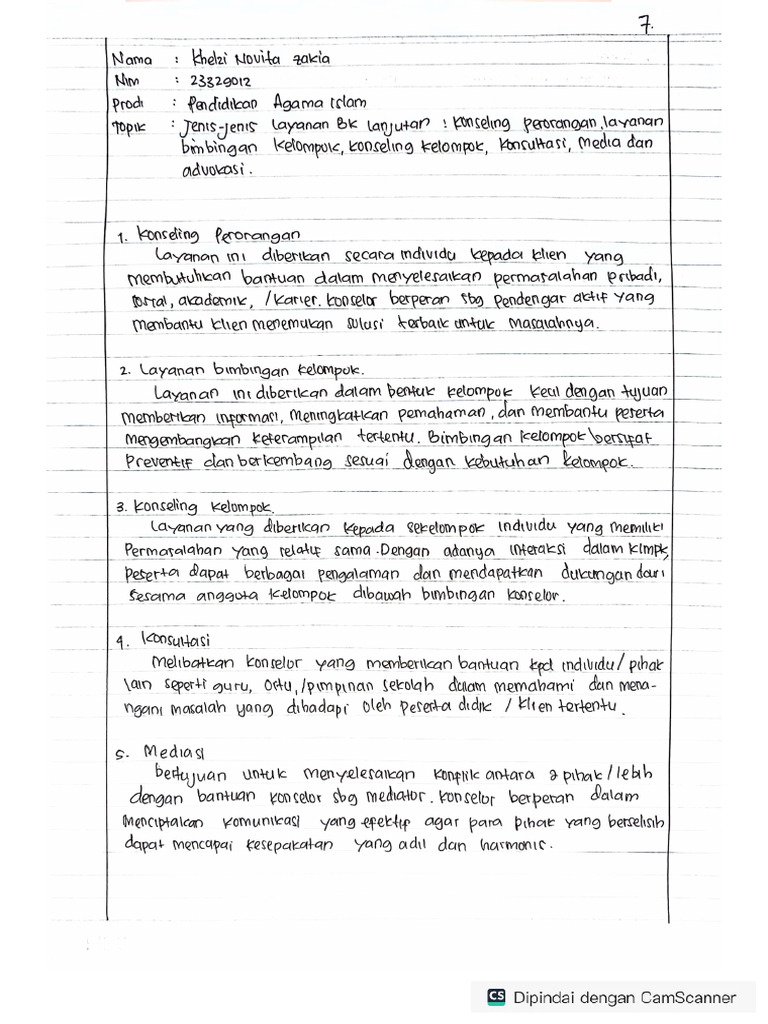 7.
Nama : Khelzi Novita zakia
Nim : 23329012
Prodi : Pendidikan Agama Islam
Topik : Jenis-jenis layanan BK lanjutan : Konseling perorangan, layanan
bimbingan kelompok, konseling kelompok, konsultasi, media dan
advokasi.
1. Konseling Perorangan
Layanan ini diberikan secara individu kepada klien yang
membutuhkan bantuan dalam menyelesaikan permasalahan pribadi,
sosial, akademik, /karier. Konselor berperan sbg pendengar aktif yang
membantu klien menemukan solusi terbaik untuk masalahnya.
2. Layanan bimbingan kelompok.
Layanan ini diberikan dalam bentuk kelompok kecil dengan tujuan
memberikan informasi, meningkatkan pemahaman, dan membantu peserta
mengembangkan keterampilan tertentu. Bimbingan kelompok bersifat
preventif dan berkembang sesuai dengan kebutuhan kelompok.
3. Konseling kelompok.
Layanan yang diberikan kepada sekelompok individu yang memiliki
Permasalahan yang relatif sama. Dengan adanya interaksi dalam klmpk,
peserta dapat berbagai pengalaman dan mendapatkan dukungan dari
sesama anggota kelompok dibawah bimbingan konselor.
4. Konsultasi
Melibatkan konselor yang memberikan bantuan kpd individu/ pihak
lain seperti guru, ortu, /pimpinan sekolah dalam memahami dan mena-
ngani masalah yang dihadapi oleh peserta didik / klien tertentu.
5. Mediasi
bertujuan untuk menyelesaikan konflik antara 2 pihak/lebih
dengan bantuan konselor sbg mediator. Konselor berperan dalam
menciptakan komunikasi yang efektif agar para pihak yang berselisih
dapat mencapai kesepakatan yang adil dan harmonis.
CS Dipindai dengan CamScanner